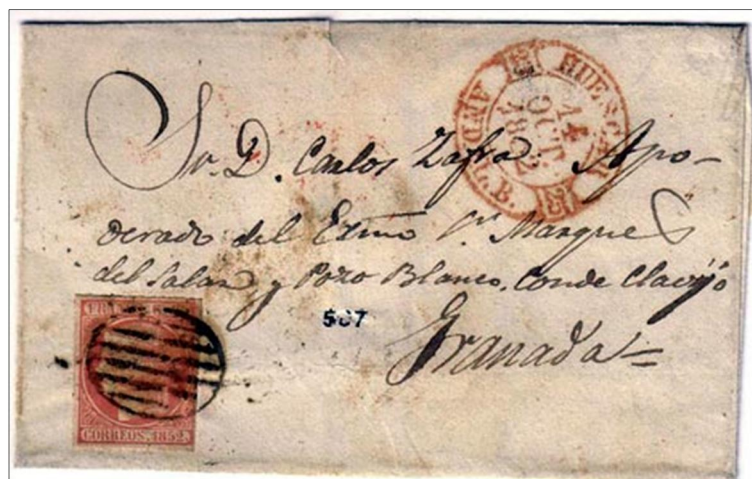 HUESCAR
14
OCT
1852
AND. B.
Sr. D. Carlos Zafra. Apo-
derado del Exmo Sr. Marques
del Salar y Pozo Blanco, Conde Clavijo
567
Granada
CORREOS. 1852.